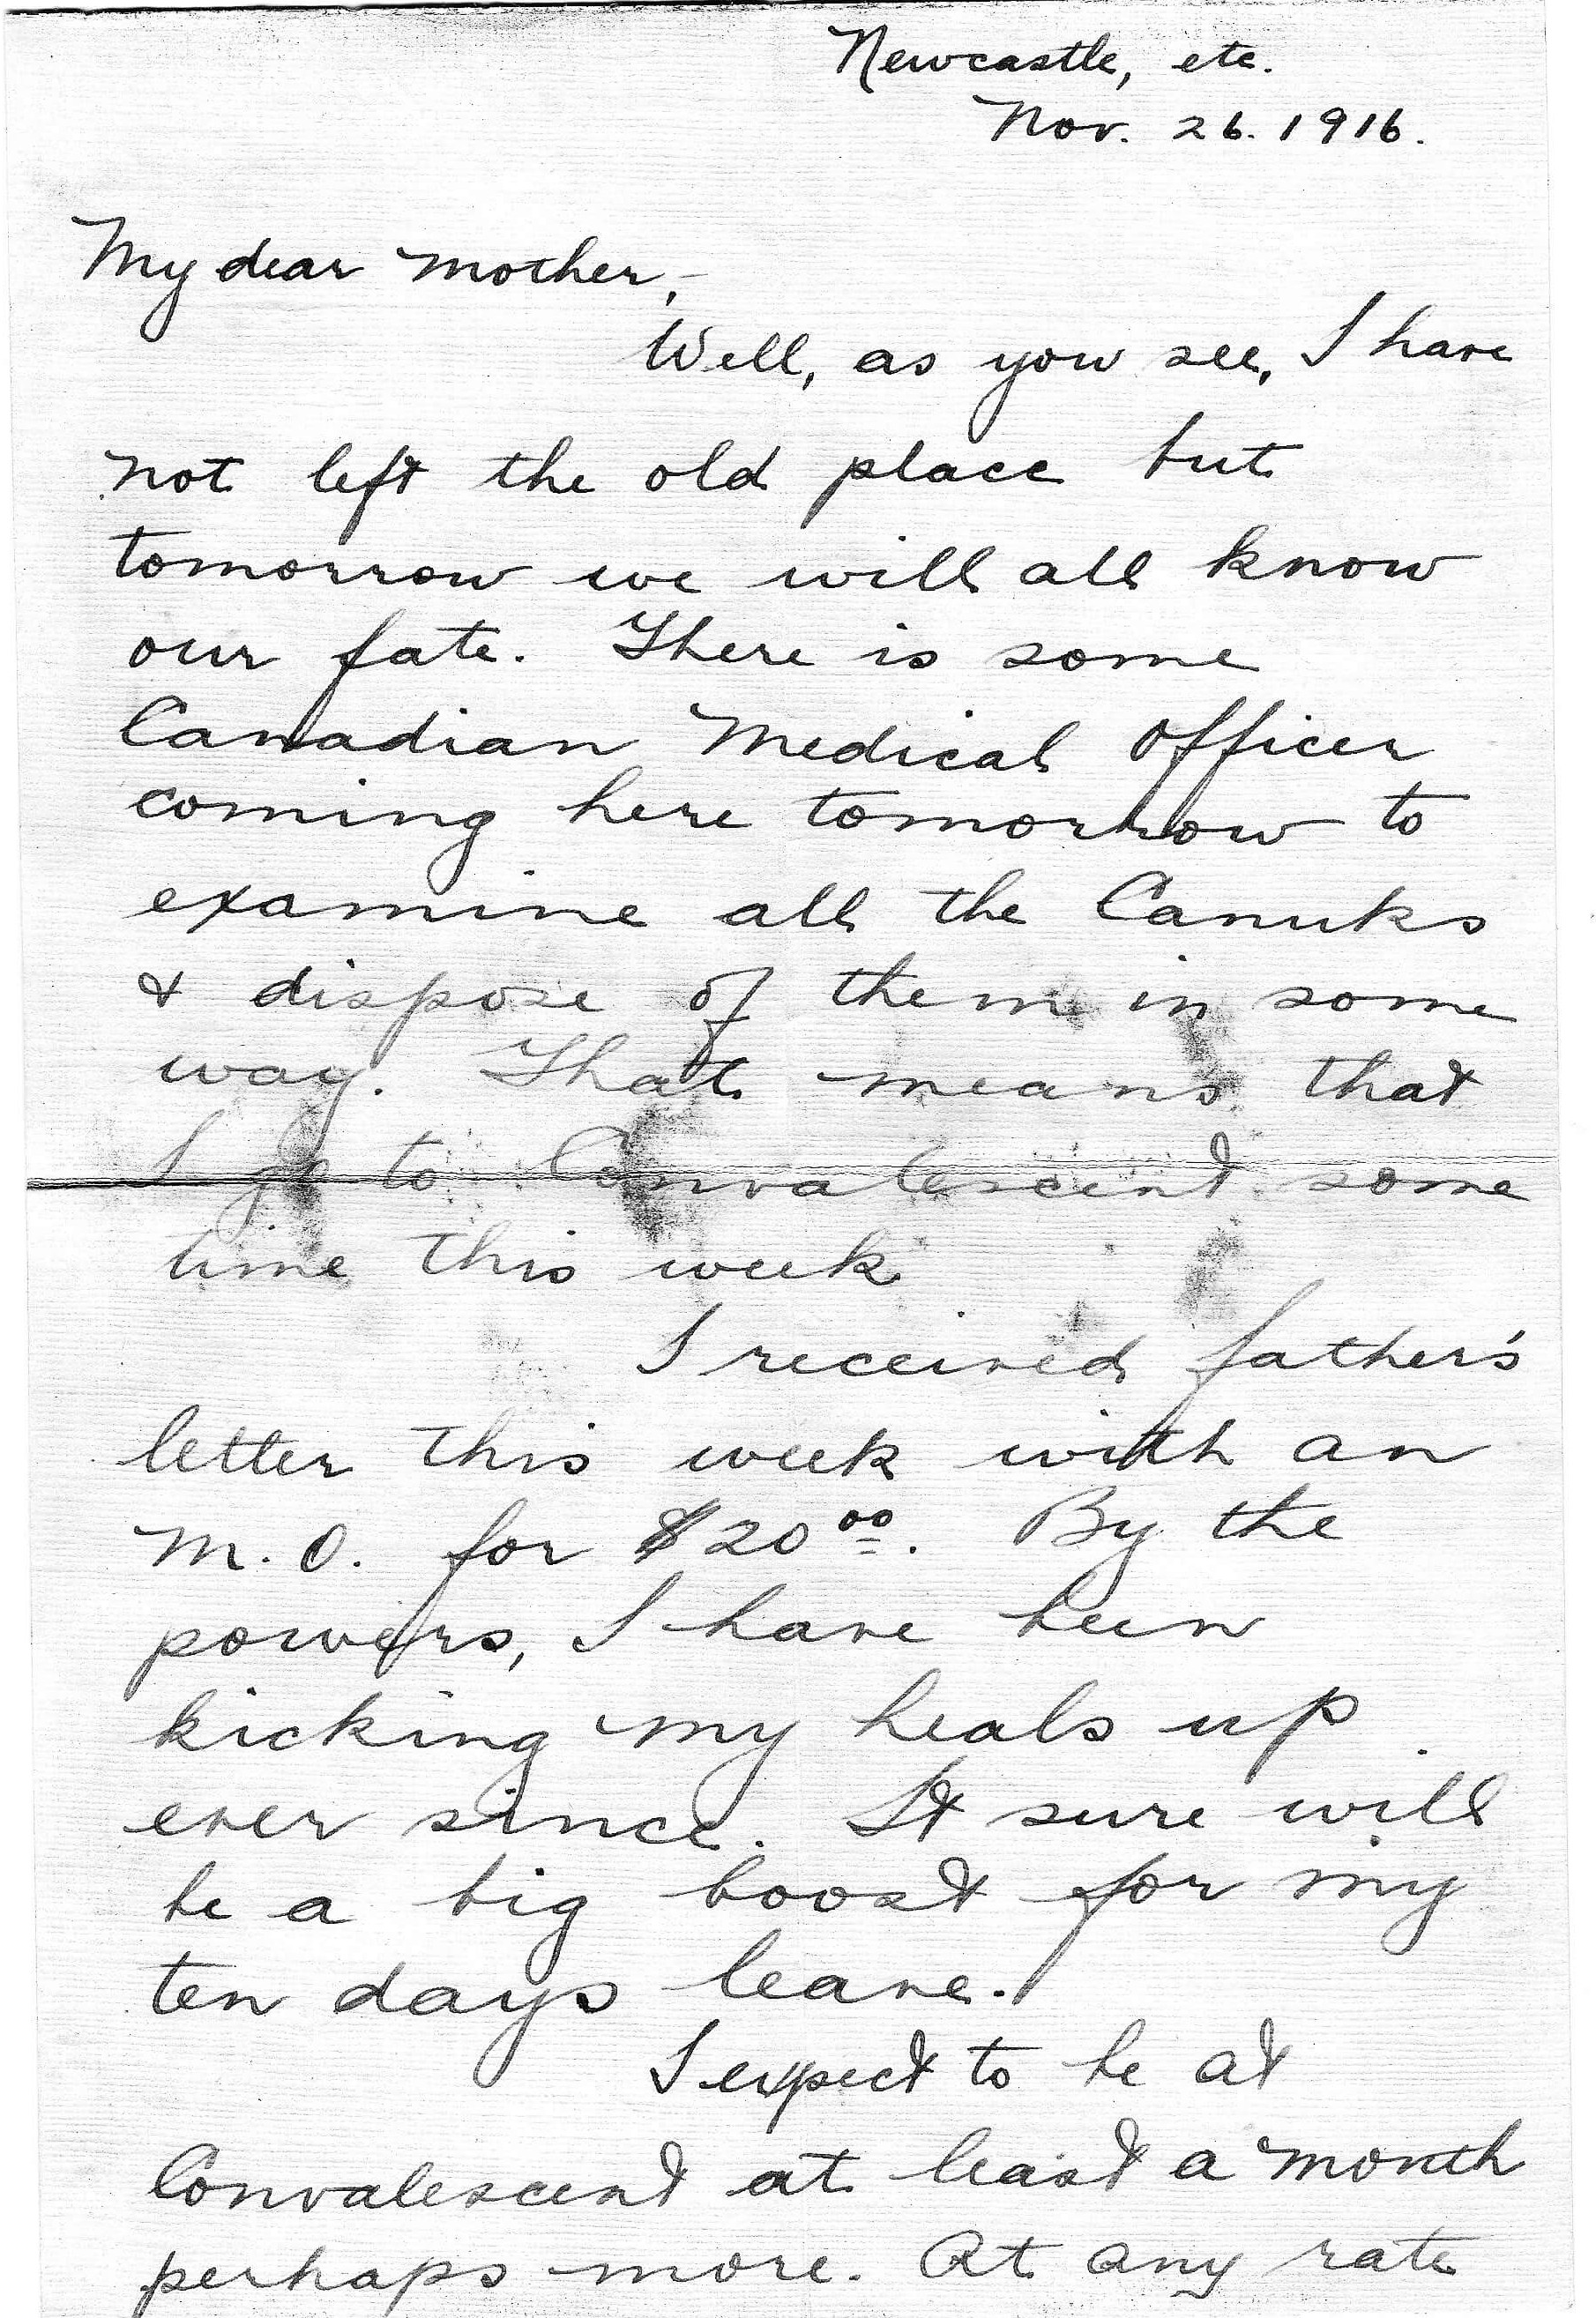 Newcastle, etc.
Nov. 26. 1916.
My dear Mother,-
Well, as you see, I have
not left the old place but
tomorrow we will all know
our fate. There is some
Canadian Medical Officer
coming here tomorrow to
examine all the Canuks
& dispose of them in some
way. That means that
I go to Convalescent some
time this week
I received father's
letter this week with an
M.O. for $20.00. By the
powers, I have been
kicking my heals up
ever since. It sure will
be a big boost for my
ten days leave.
I expect to be at
Convalescent at least a month
perhaps more. At any rate